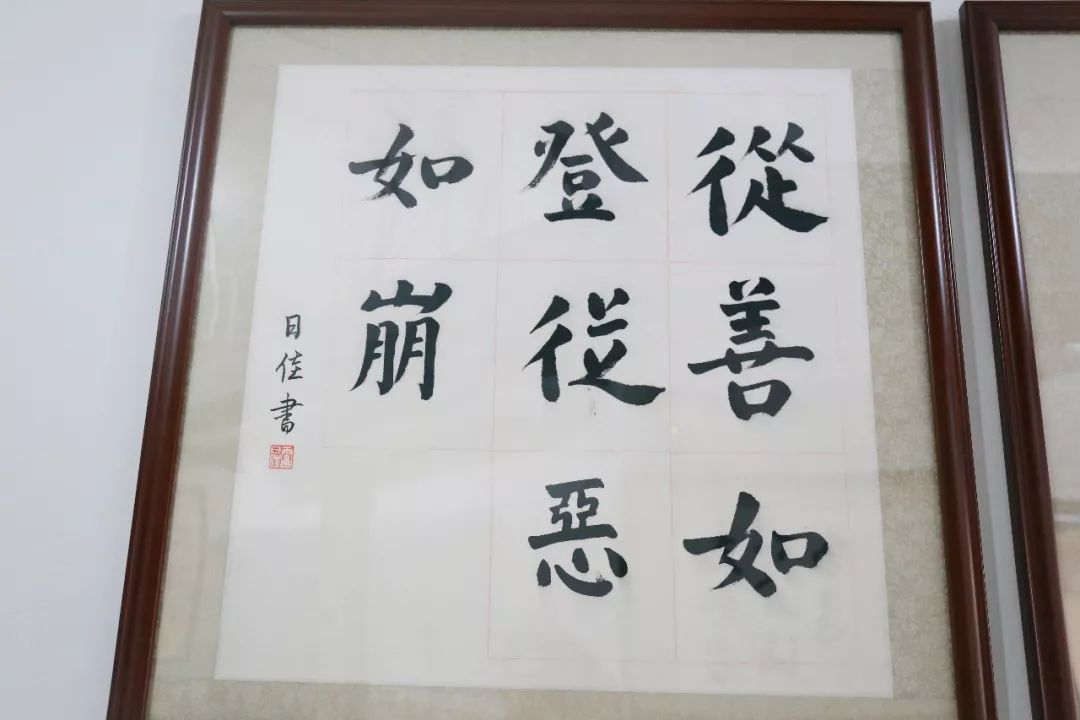 從善如
登從惡
如崩
日佳書